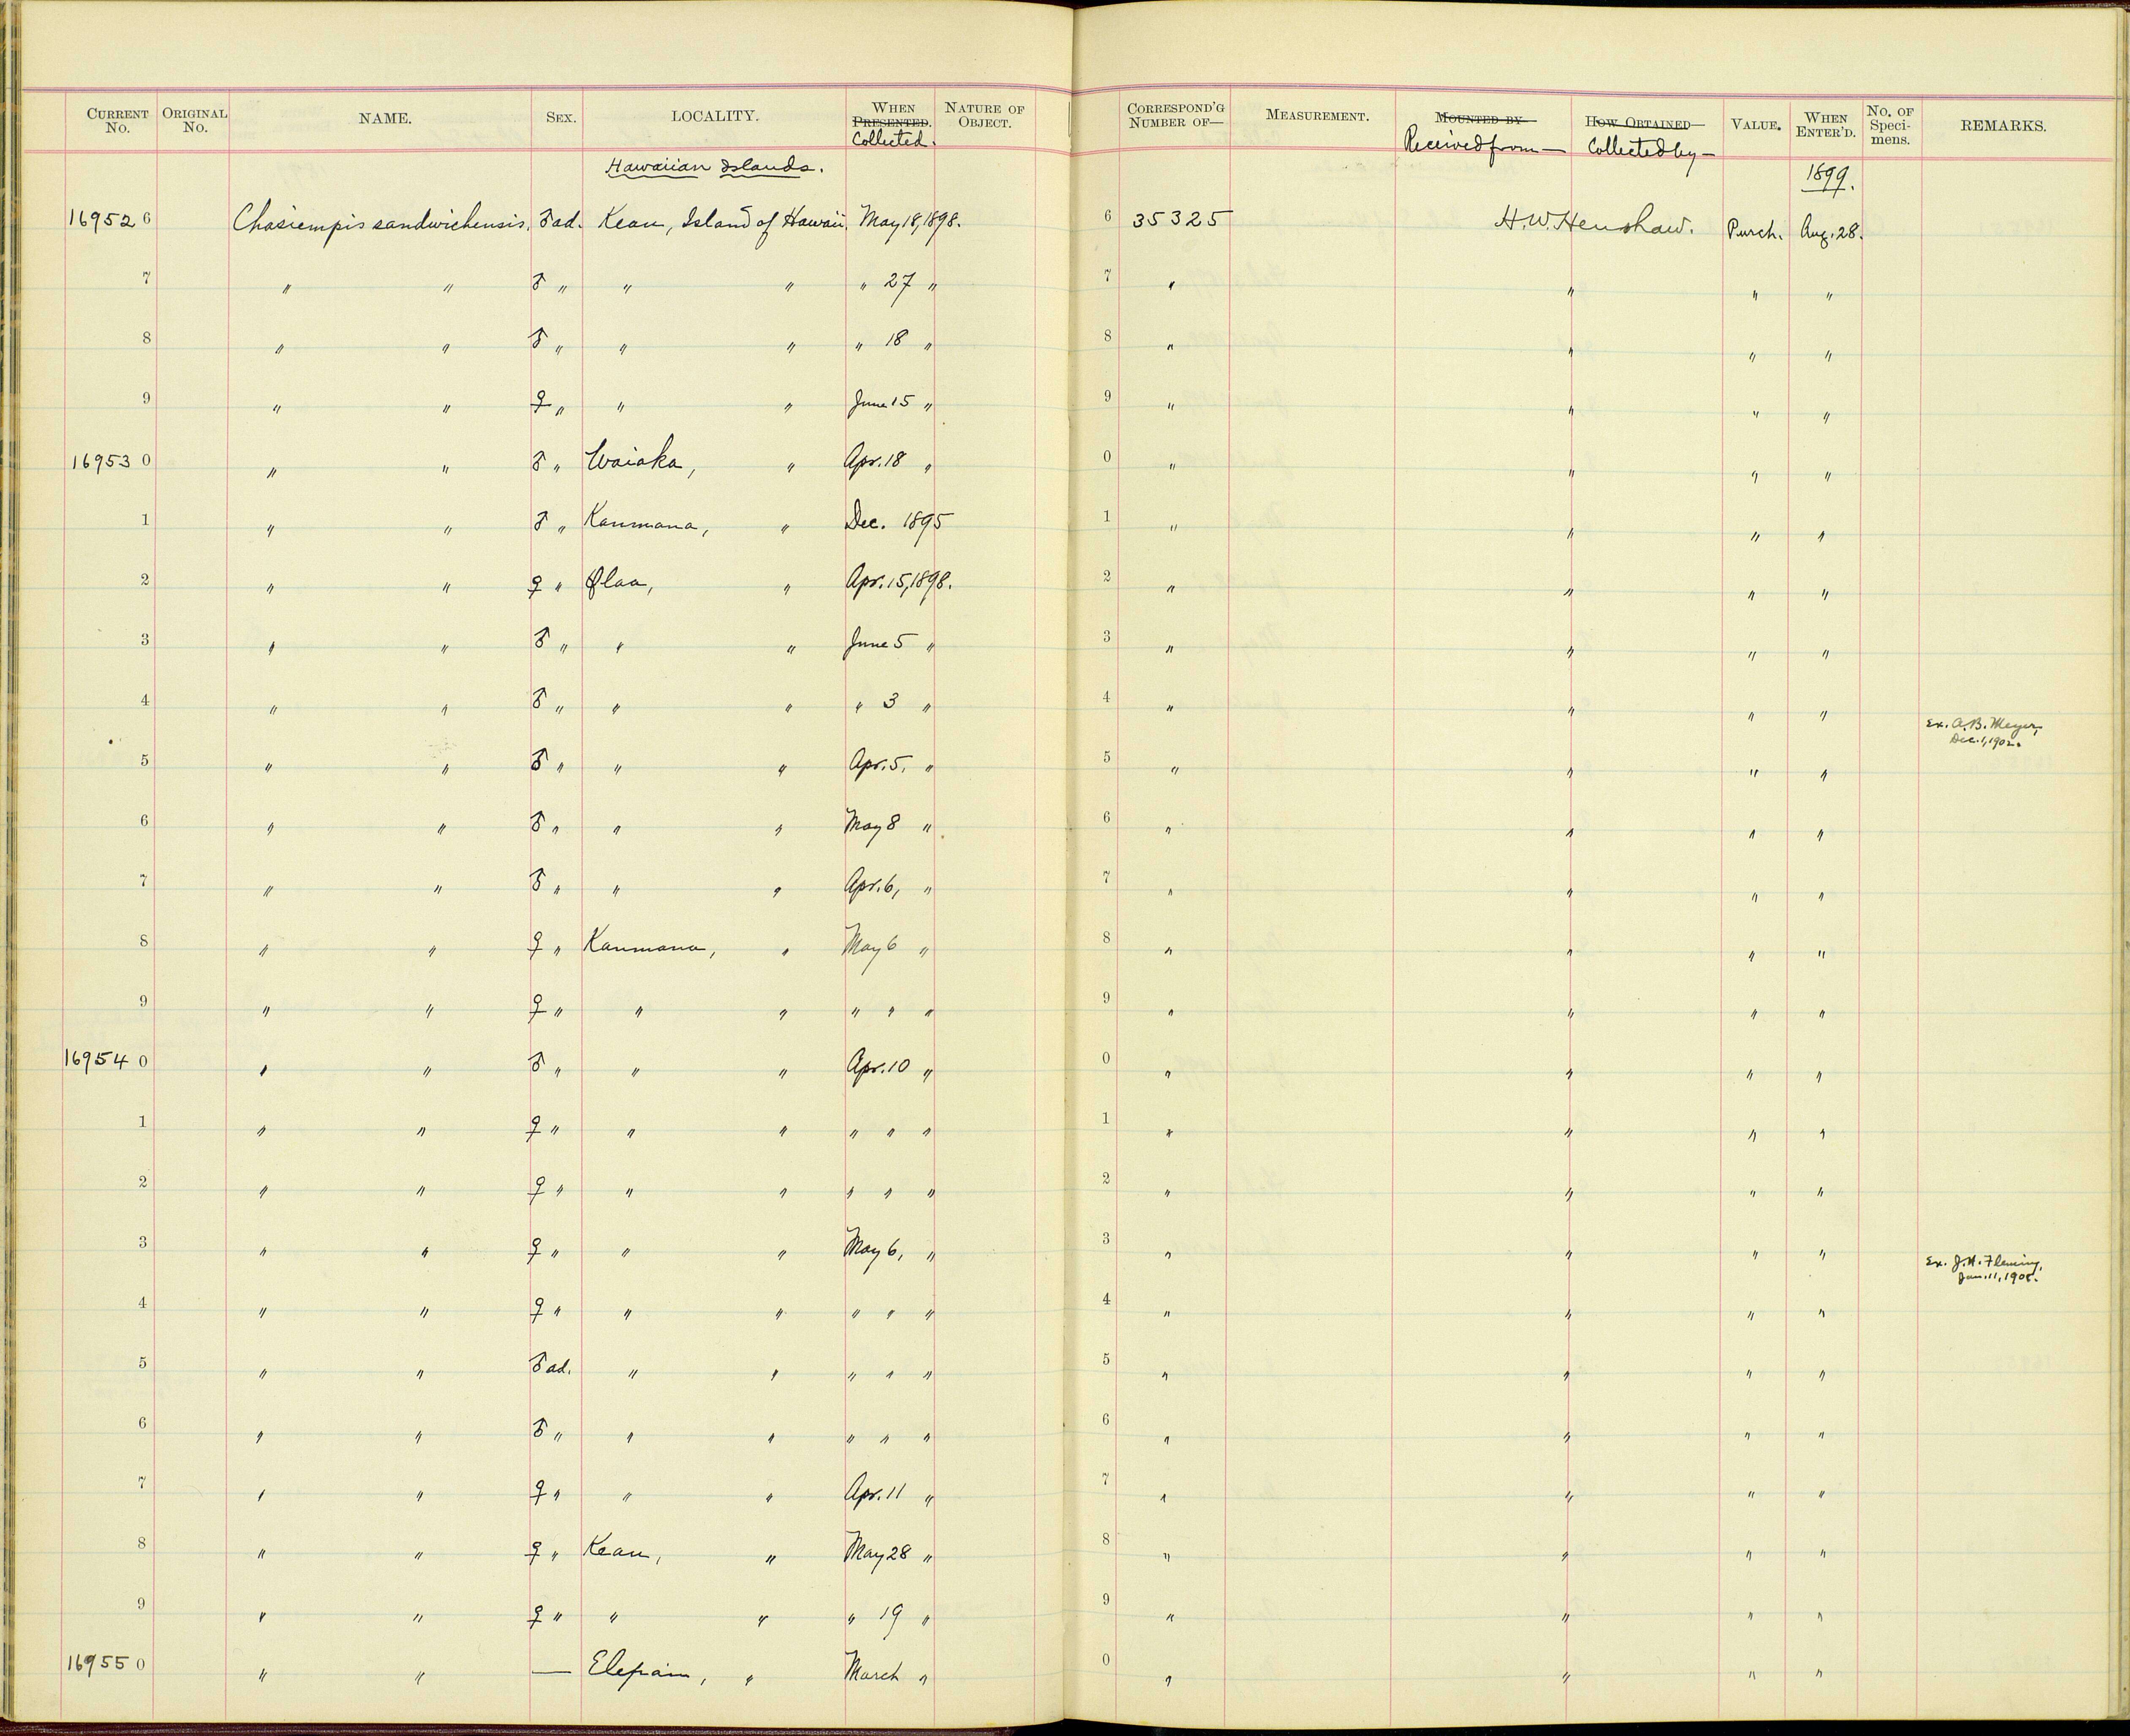 CURRENT No. ORIGINAL No. NAME. SEX. LOCALITY. WHEN PRESENTED. Collected. NATURE OF OBJECT. CORRESPOND'G NUMBER OF— MEASUREMENT. MOUNTED BY Received from — HOW OBTAINED Collected by — VALUE. WHEN ENTER'D. No. OF Speci-mens. REMARKS.
Hawaiian Islands. 1899.
16952 6 Chasiempis sandwichensis. ♂ ad. Keau, Island of Hawaii. May 18, 1898. 6 35325 H.W. Henshaw. Purch. Aug. 28.
7 " " ♂ " " " " 27 " 7 " " " "
8 " " ♂ " " " " 18 " 8 " " " "
9 " " ♀ " " " June 15 " 9 " " " "
16953 0 " " ♂ " Waiaka, " Apr. 18 " 0 " " " "
1 " " ♂ " Kaumana, " Dec. 1895 1 " " " "
2 " " ♀ " Olaa, " Apr. 15, 1898. 2 " " " "
3 " " ♂ " " " June 5 " 3 " " " "
4 " " ♂ " " " " 3 " 4 " " " " Ex. A.B. Meyer,
Dec. 1, 1902.
5 " " ♂ " " " Apr. 5, " 5 " " " "
6 " " ♂ " " " May 8 " 6 " " " "
7 " " ♂ " " " Apr. 6, " 7 " " " "
8 " " ♀ " Kaumana, " May 6 " 8 " " " "
9 " " ♀ " " " " " " 9 " " " "
16954 0 " " ♂ " " " Apr. 10 " 0 " " " "
1 " " ♀ " " " " " " 1 " " " "
2 " " ♀ " " " " " " 2 " " " "
3 " " ♀ " " " May 6, " 3 " " " " Ex. J.H. Fleming,
Jan. 11, 1908.
4 " " ♀ " " " " " " 4 " " " "
5 " " ♂ ad. " " " " " 5 " " " "
6 " " ♂ " " " " " " 6 " " " "
7 " " ♀ " " " Apr. 11 " 7 " " " "
8 " " ♀ " Keau, " May 28 " 8 " " " "
9 " " ♀ " " " " 19 " 9 " " " "
16955 0 " " — " March " 0 " " " "